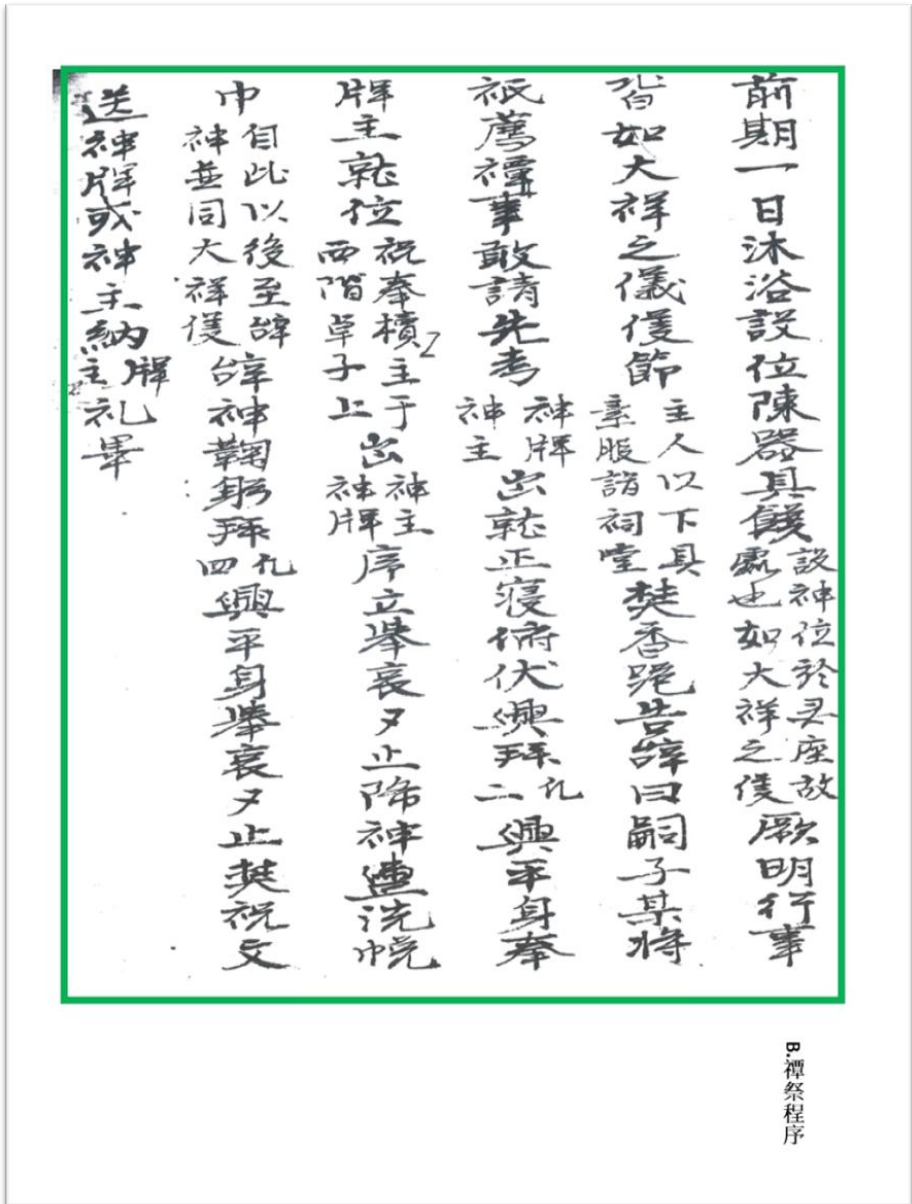 前期一日沐浴設位陳器具饌設神位於灵座故處也如大祥之儀厥明行事
皆如大祥之儀儀節主人以下具素服詣祠堂焚香跪告辞曰嗣子某将
祇薦禫事敢請先考神牌神主出就正寝俯伏興拜凡二興平身奉
牌主就位祝奉櫝主于西階卓子上出神主神牌序立举哀夕止降神盥洗帨
巾自此以後至辞神並同大祥儀辞神鞠躬拜凡四興平身举哀夕止焚祝文
送神牌或神主納牌主礼畢
B.禫祭程序